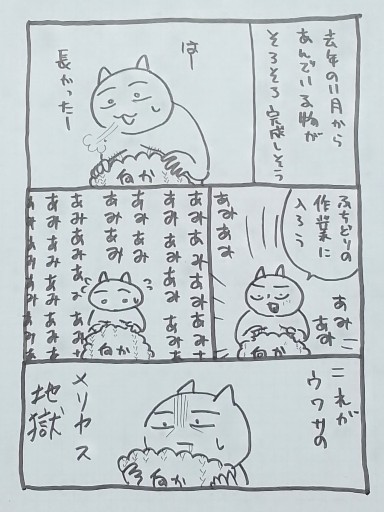 去年の11月から
あんでいる物が
そろそろ完成しそう
はー
長かったー
何か
ふちどりの
作業に
入ろう
あみ
あみ
あみあみ
何か
あみあみあみあみあみ
あみあみあみあみあみ
あみあみ
あみあみ
あみあみあみあみあみ
あみあみあみあみあみ
あみあみあみあみあみ
何か
これが
ウワサの
メリヤス
地獄
何か